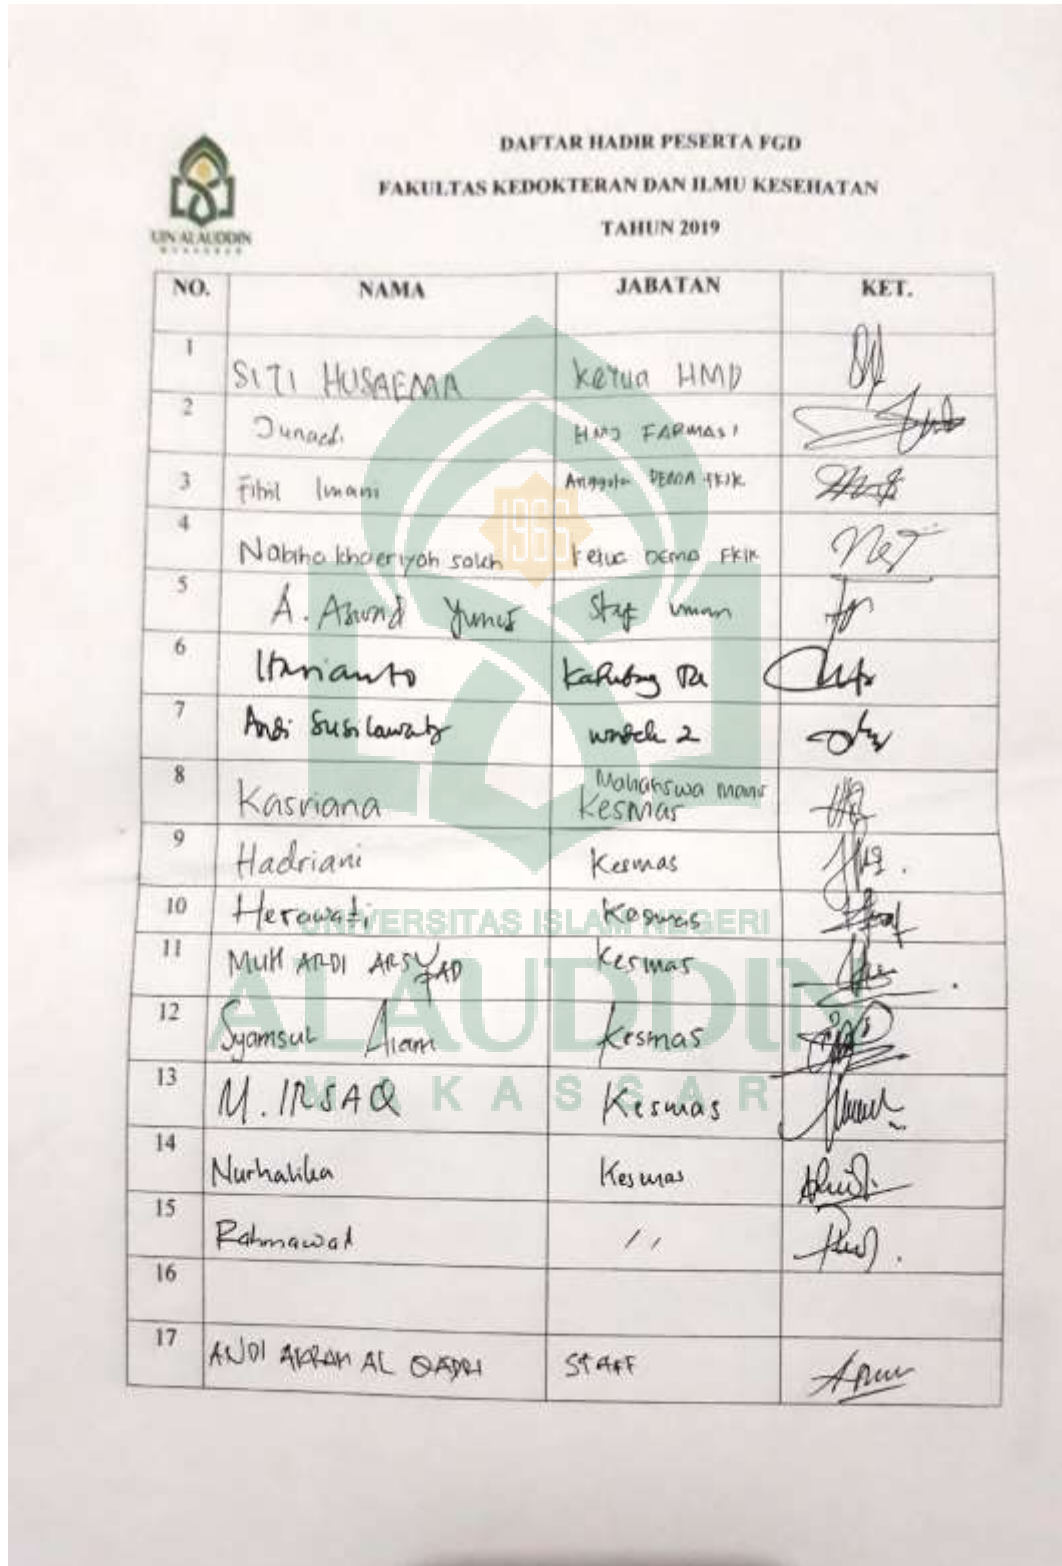 DAFTAR HADIR PESERTA FGD
FAKULTAS KEDOKTERAN DAN ILMU KESEHATAN
TAHUN 2019
UIN ALAUDDIN
MAKASSAR
NO. NAMA JABATAN KET.
1 SITI HUSAEMA Ketua HMD
2 Junaedi HMJ FARMASI
3 Imani Anggota DEMA FKIK
4 Nabiha Khaeriyah Saleh Ketua DEMA FKIK
5 A. Aswad Yunus Staf Umum
6 Harianto
7 Andi Susilawaty 2
8 Kasriana Mahasiswa
Kesmas
9 Hadriani Kesmas
10 Herawati Kesmas
11 MUH ARDI ARSYAD Kesmas
12 Syamsul Alam Kesmas
13 M. IRSAQ Kesmas
14 Kesmas
15 Rahmawat 〃
16
17 ANDI AKRAM AL QADRI STAFF
1965
UNIVERSITAS ISLAM NEGERI
ALAUDDIN
MAKASSAR